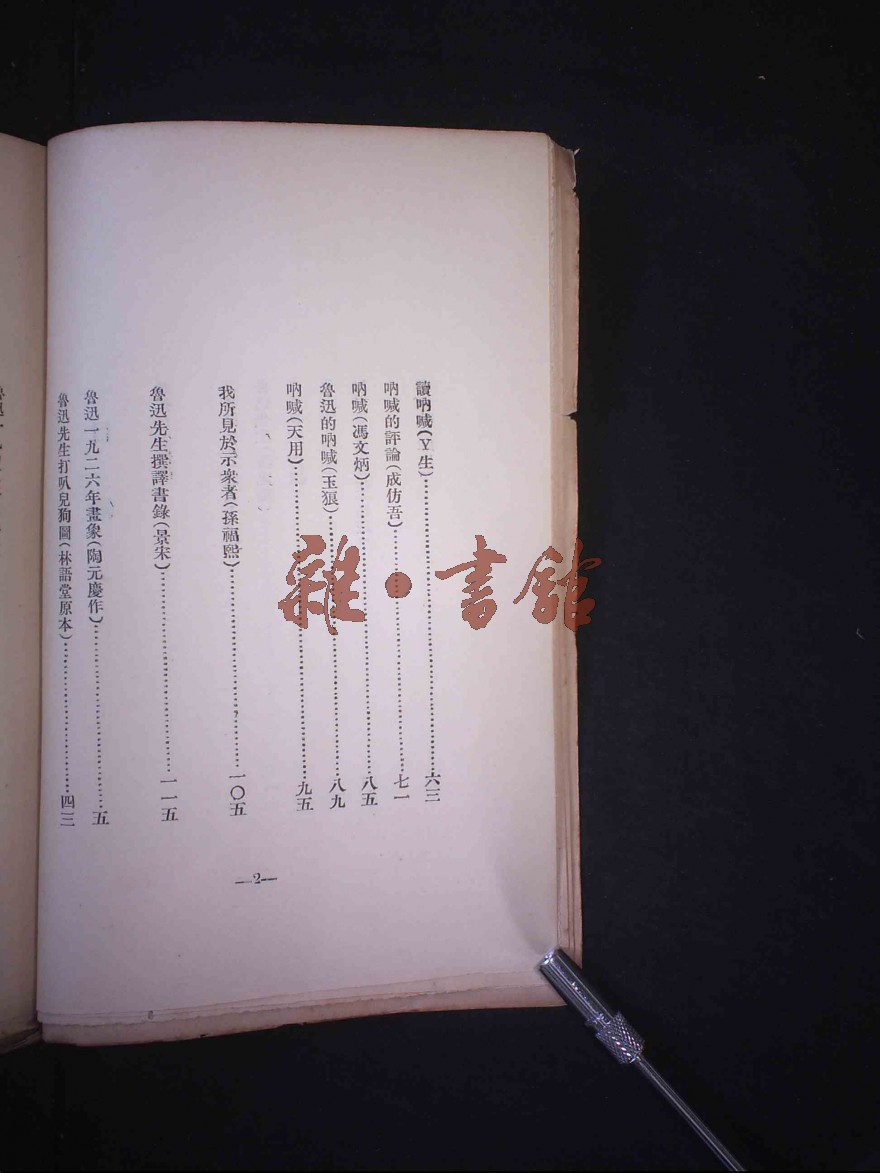 讀吶喊(Y生)……六三
吶喊的評論(成仿吾)……七一
吶喊(馮文炳)……八五
魯迅的吶喊(玉狼)……八九
吶喊(天用)……九五
我所見於示衆者(孫福熙)……一〇五
魯迅先生撰譯書錄(景宋)……一一五
魯迅一九二六年畫象(陶元慶作)……五
魯迅先生打叭兒狗圖(林語堂原本)……四三
—2—
雜·書館